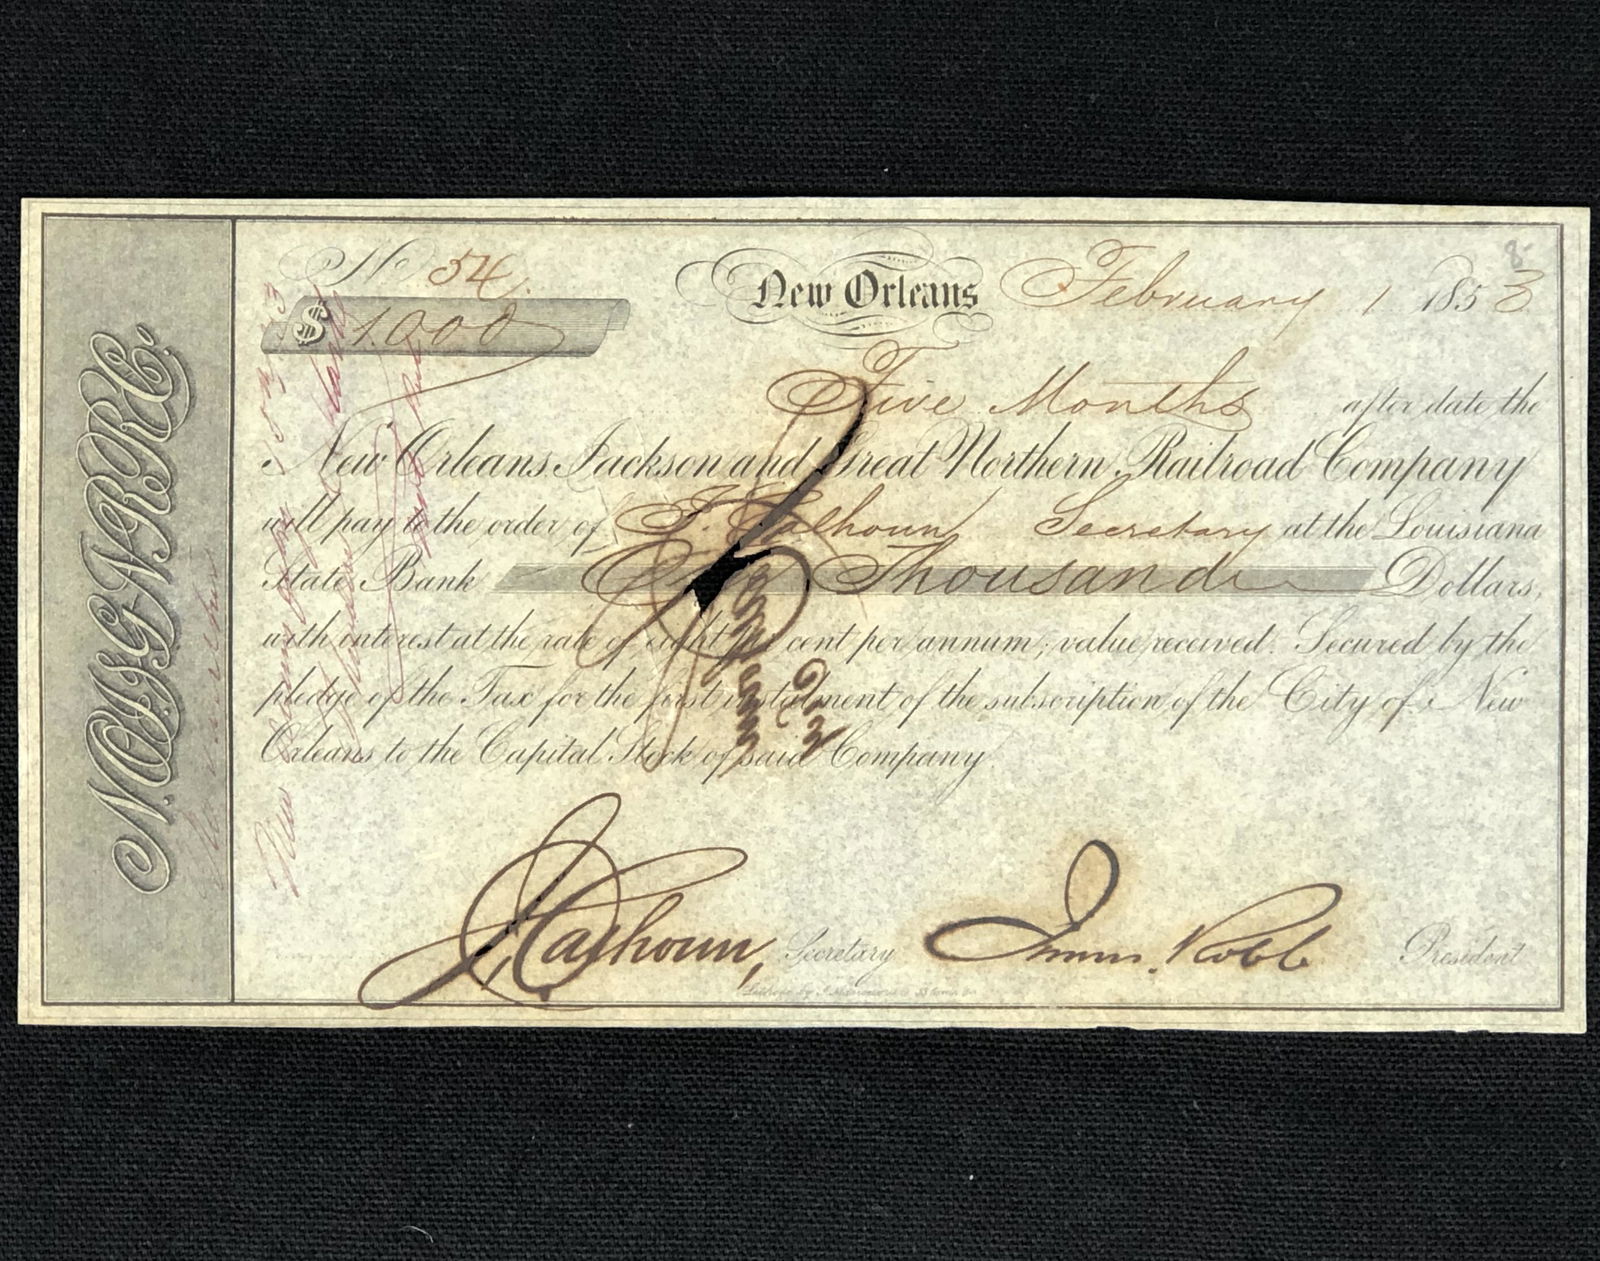 N.O.J.& G.N.R.R.Co.
No 54.
$ 1.000
New Orleans February 1 1853
8
Five Months after date the
New Orleans, Jackson and Great Northern Railroad Company
will pay to the order of J. Calhoun Secretary at the Louisiana
State Bank One Thousand Dollars,
with interest at the rate of eight per cent per annum, value received. Secured by the
pledge of the Tax for the first instalment of the subscription of the City of New
Orleans to the Capital Stock of said Company
J. Calhoun, Secretary
James Robb President